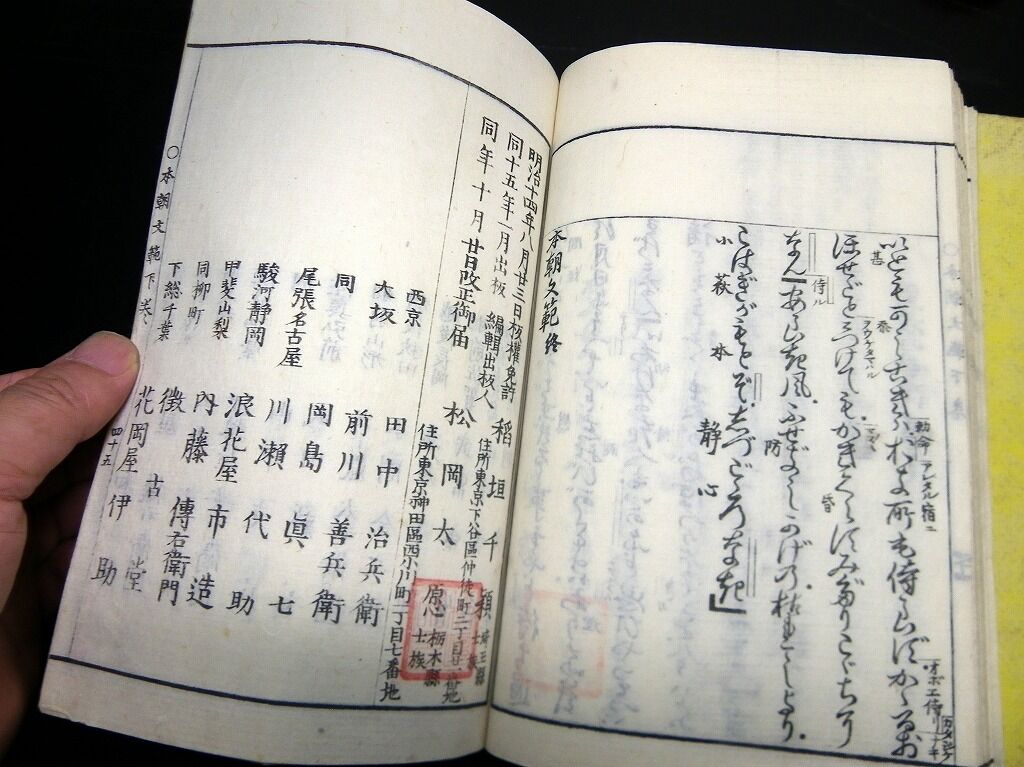 いともかしこきは。おき所も侍らず。かゝるお
甚
勅命
ほせごとにつけても。かきくらすみだりごゝちに
昏
なん。あらき風。ふせぎしかげの。枯れしより。
侍ル
防
こはぎがもとぞ。しづごゝろなき」
小萩 本 静心
本朝文範 終
明治十四年八月廿三日板權免許
同十五年一月出板
編輯出板人
稻垣千穎
住所東京下谷區仲徒町二丁目
士族
同年十月廿日改正御届
松岡太愿
栃木縣士族
住所東京神田區西小川町一丁目七番地
西京 田中治兵衛
大坂 前川善兵衛
同 岡島眞七
尾張名古屋 川瀬代助
駿河靜岡 浪花屋市造
甲斐山梨 內藤傳右衛門
同柳町 徴古堂
下総千葉 花岡屋伊助
○本朝文範下巻
四十五